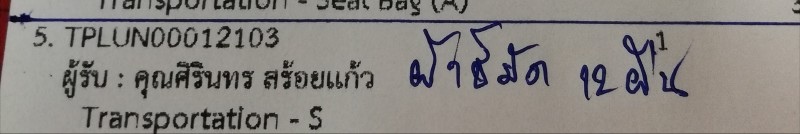 Transportation - Seat Bag (A)
5. TPLUN00012103
ผู้รับ : คุณศิรินทร สร้อยแก้ว ผ้าขี้มัด 12 ผืน
Transportation - S